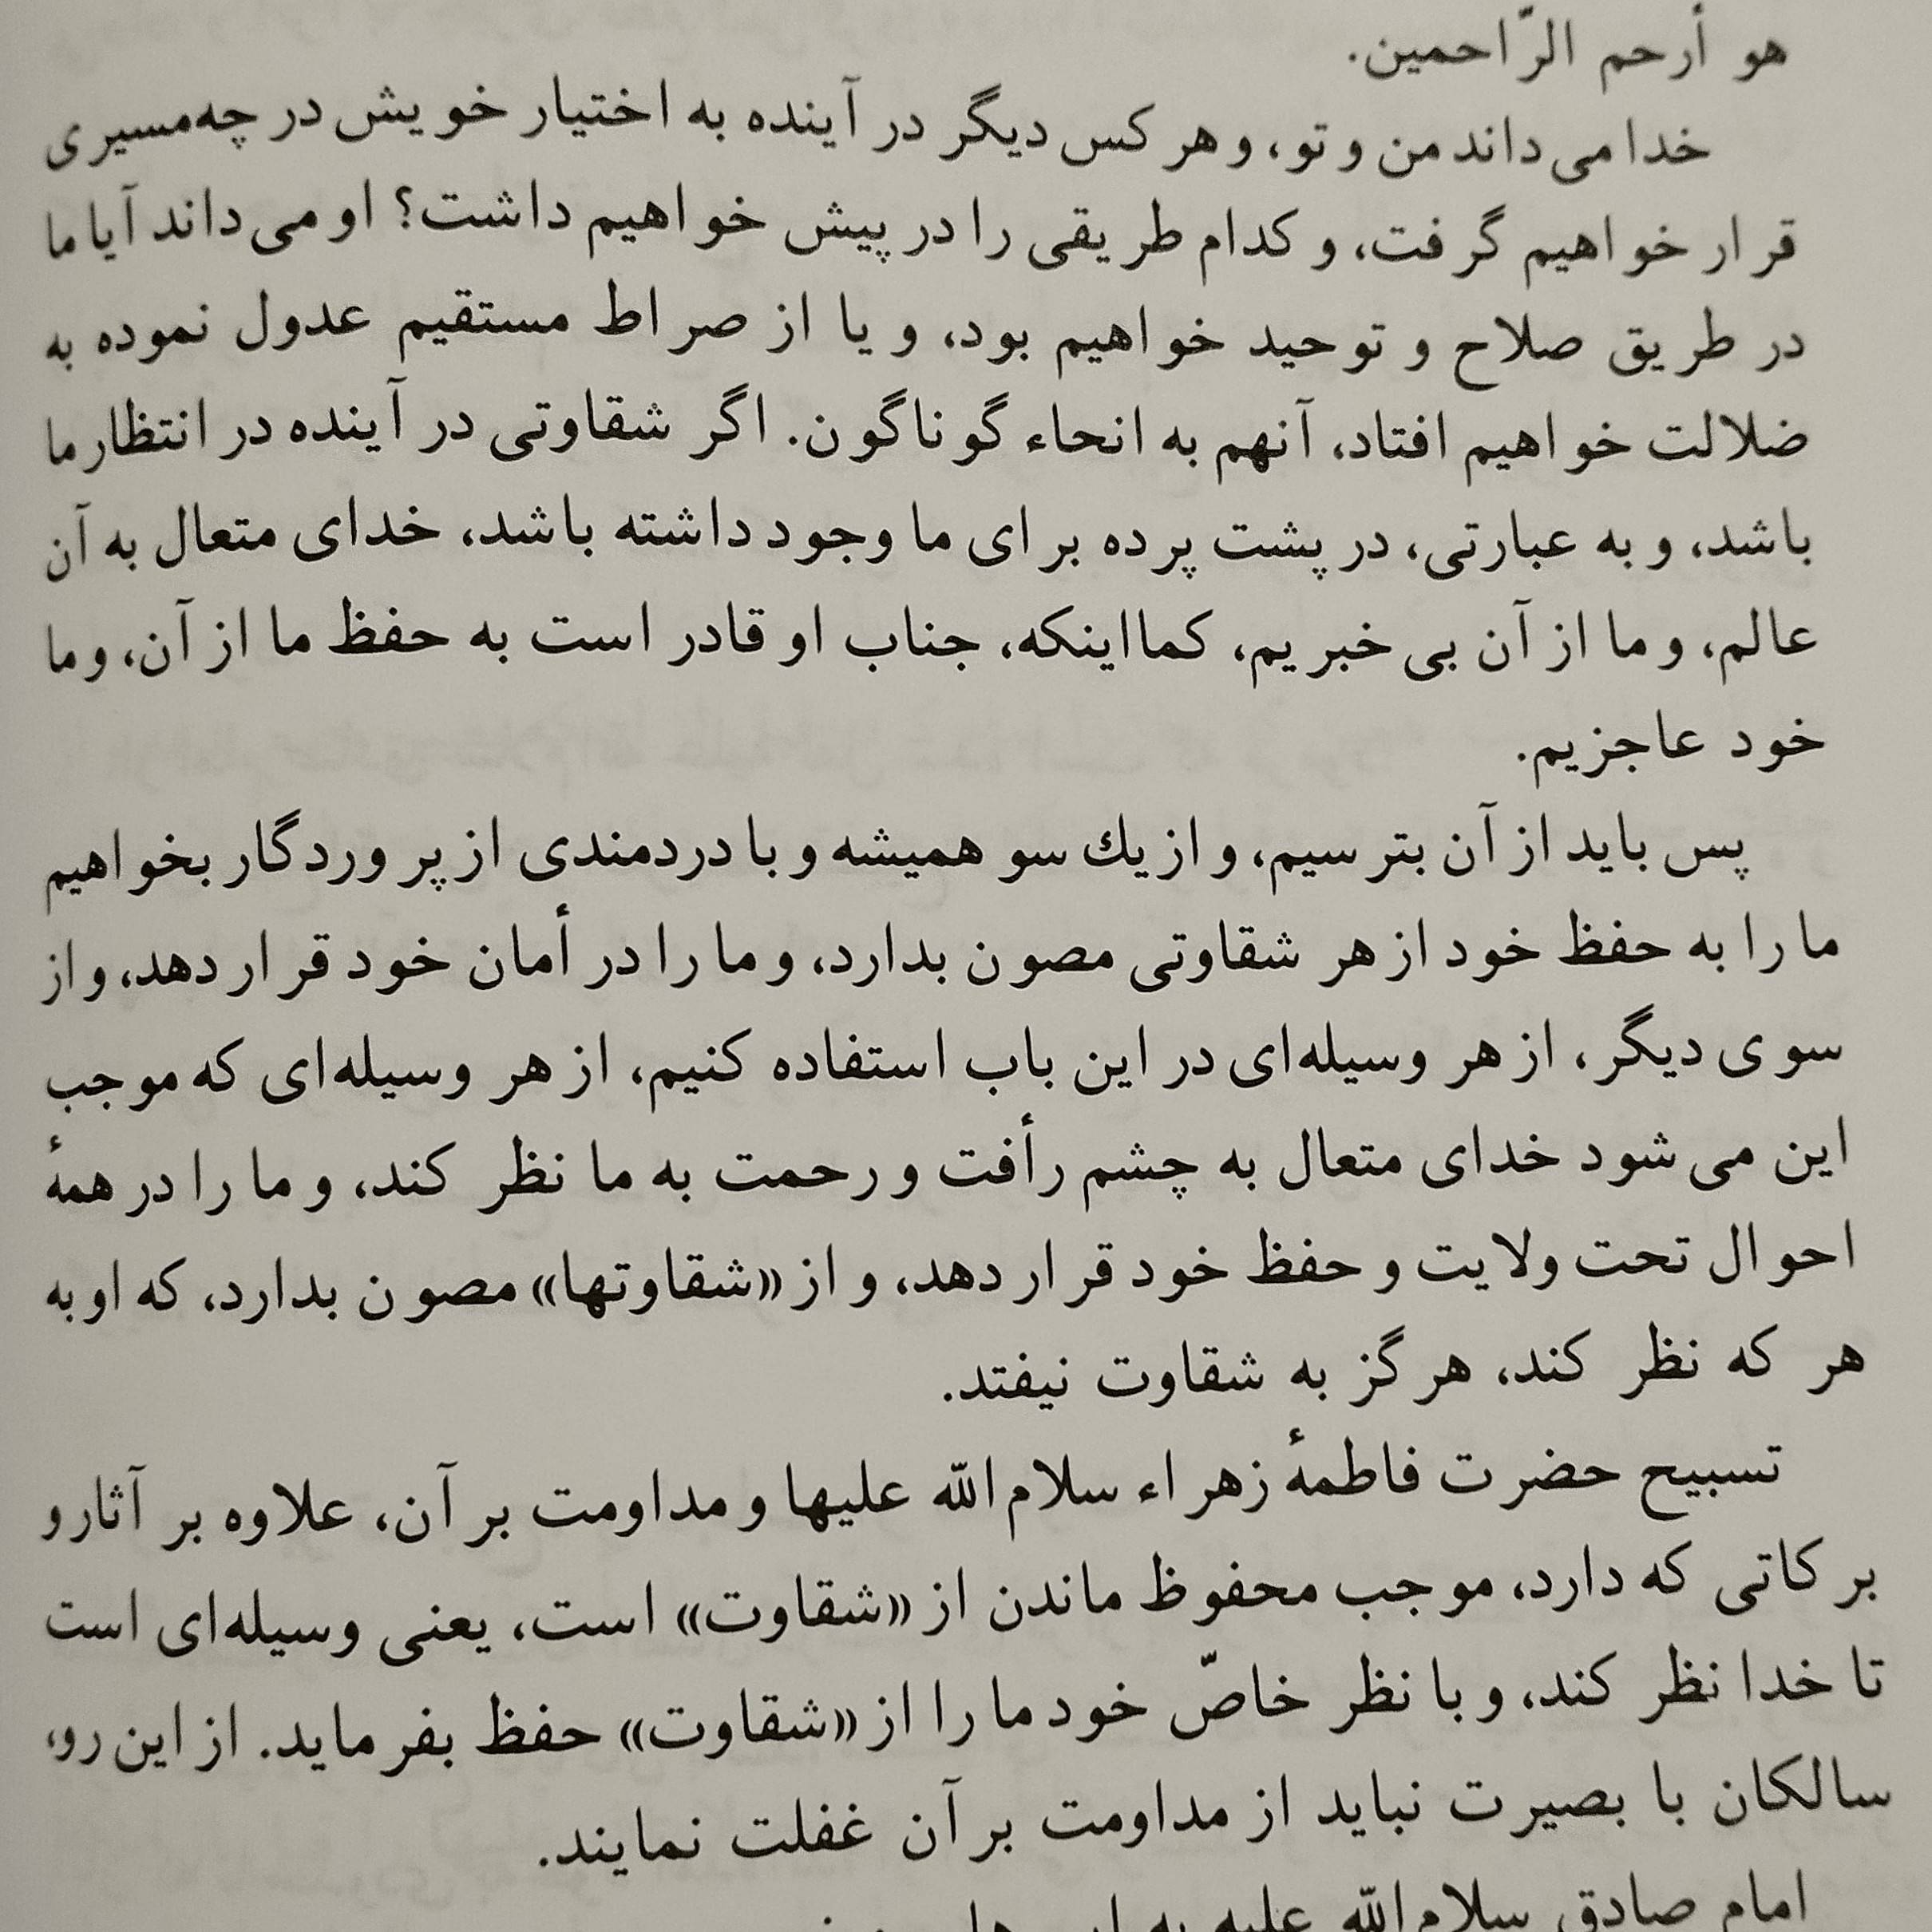 هو أرحم الرّاحمین.
خدا می داند من و تو، و هر کس دیگر در آینده به اختیار خویش در چه‌مسیری
قرار خواهیم گرفت، و کدام طریقی را در پیش خواهیم داشت؟ او می داند آیا ما
در طریق صلاح و توحید خواهیم بود، و یا از صراط مستقیم عدول نموده به
ضلالت خواهیم افتاد، آنهم به انحاء گوناگون. اگر شقاوتی در آینده در انتظار ما
باشد، و به عبارتی، در پشت پرده برای ما وجود داشته باشد، خدای متعال به آن
عالم، و ما از آن بی خبریم، کما اینکه، جناب او قادر است به حفظ ما از آن، و ما
خود عاجزیم.
پس باید از آن بترسیم، و از یك سو همیشه و با دردمندی از پروردگار بخواهیم
ما را به حفظ خود از هر شقاوتی مصون بدارد، و ما را در أمان خود قرار دهد، و از
سوی دیگر، از هر وسیله‌ای در این باب استفاده کنیم، از هر وسیله‌ای که موجب
این می شود خدای متعال به چشم رأفت و رحمت به ما نظر کند، و ما را در همۀ
احوال تحت ولایت و حفظ خود قرار دهد، و از «شقاوتها» مصون بدارد، که او به
هر که نظر کند، هرگز به شقاوت نیفتد.
تسبیح حضرت فاطمۀ زهراء سلام اللّه علیها و مداومت بر آن، علاوه بر آثار و
برکاتی که دارد، موجب محفوظ ماندن از «شقاوت» است، یعنی وسیله‌ای است
تا خدا نظر کند، و با نظر خاصّ خود ما را از «شقاوت» حفظ بفرماید. از این رو،
سالکان با بصیرت نباید از مداومت بر آن غفلت نمایند.
امام صادق سلام اللّه علیه به